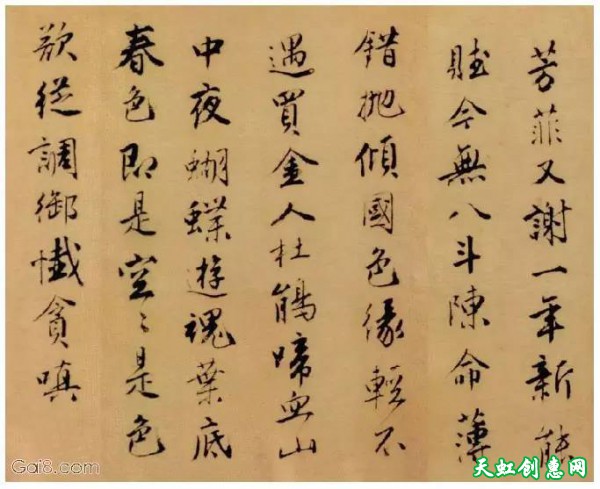 芳菲又謝一年新能
賦今無八斗陳命薄
錯抛傾國色緣輕不
遇買金人杜鵑啼血山
中夜蝴蝶遊魂葉底
春色即是空〻是色
欲從調御懺貪嗔
Gai8.com
天虹创惠网